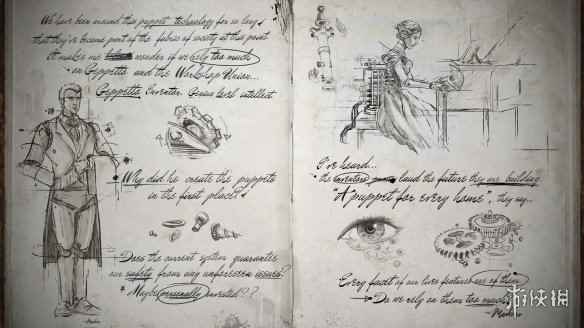 We have been around this puppet technology for so long
that they've become part of the fabric of society at this point
It makes me wonder if we rely too much
on Geppetto and the Workshop Union...
Geppetto, Inventor. Genius level intellect
Why did he create the puppets
in the first place?
Does the current system guarantee
our safety from any unforeseen issues?
Maybe personally invented??
I've heard...
the inventors laud the future they are building
"A puppet for every home", they say...
Every facet of our lives features one of them
Do we rely on them too much?
游侠网